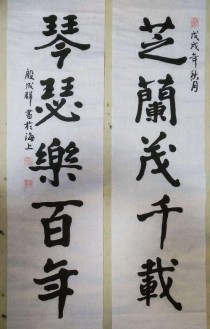 戊戌年秋月
芝蘭茂千載
琴瑟樂百年
殷成群書於海上